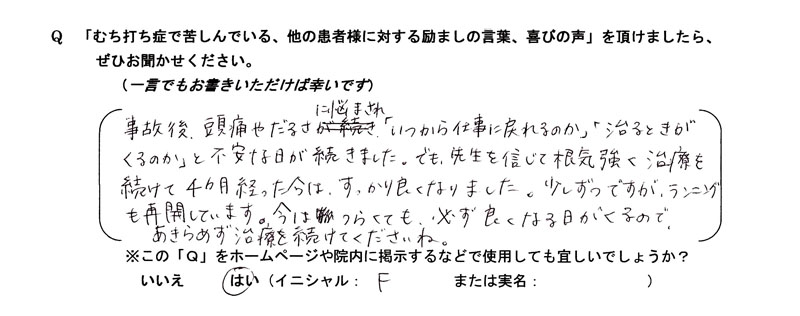 Q 「むち打ち症で苦しんでいる、他の患者様に対する励ましの言葉、喜びの声」を頂けましたら、
ぜひお聞かせください。
（一言でもお書きいただけば幸いです）
に悩まされ
事故後、頭痛やだるさが続き、「いつから仕事に戻れるのか」「治るときが
くるのか」と不安な日が続きました。でも、先生を信じて根気強く治療を
続けて4ヶ月経った今は、すっかり良くなりました。少しずつですが、ランニング
も再開しています。今はつらくても、必ず良くなる日がくるので、
あきらめず治療を続けてくださいね。
※この「Q」をホームページや院内に掲示するなどで使用しても宜しいでしょうか？
いいえ はい（イニシャル： F または実名： ）